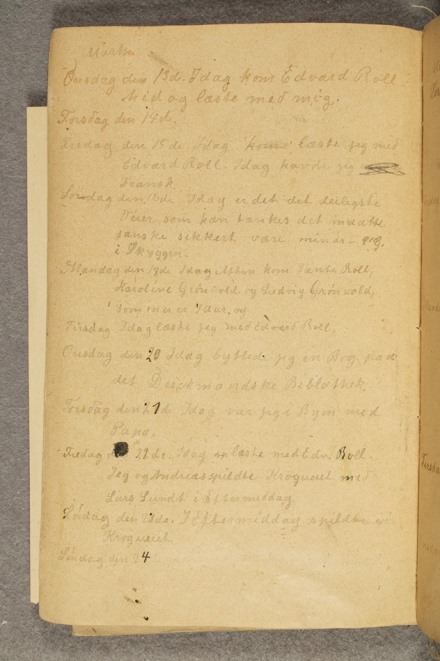 Onsdag den 13d. Idag kom Edvard Roll
hid og læste med mig.
Torsdag den 14d.
Fredag den 15de. Idag læste jeg med
Edvard Roll. Idag havde jeg
Fransk
Søndag den Idag er det det deiligste
Veier, som kan tænkes det maatte
ganske sikkert være mindst
i Skyggen.
Mandag den 18de Idag Aften kom Tante Roll,
Karoline Grønvold og Ludvig Grønvold,
som
Tirsdag Idag læste jeg med Edvard Roll.
Onsdag den 20 Idag byttede jeg en Bog paa
det Deichmandske Bibliothek.
Torsdag den 21d Idag var jeg i Byen med
Papa.
Fredag 22de. Idag læste med Edv. Roll.
Jeg og Andreas spildte Kroquet med
Lars Lundt i Eftermiddag
Lørdag den 23de. I Eftermiddag spildte vi
Kroquet.
Søndag den 24